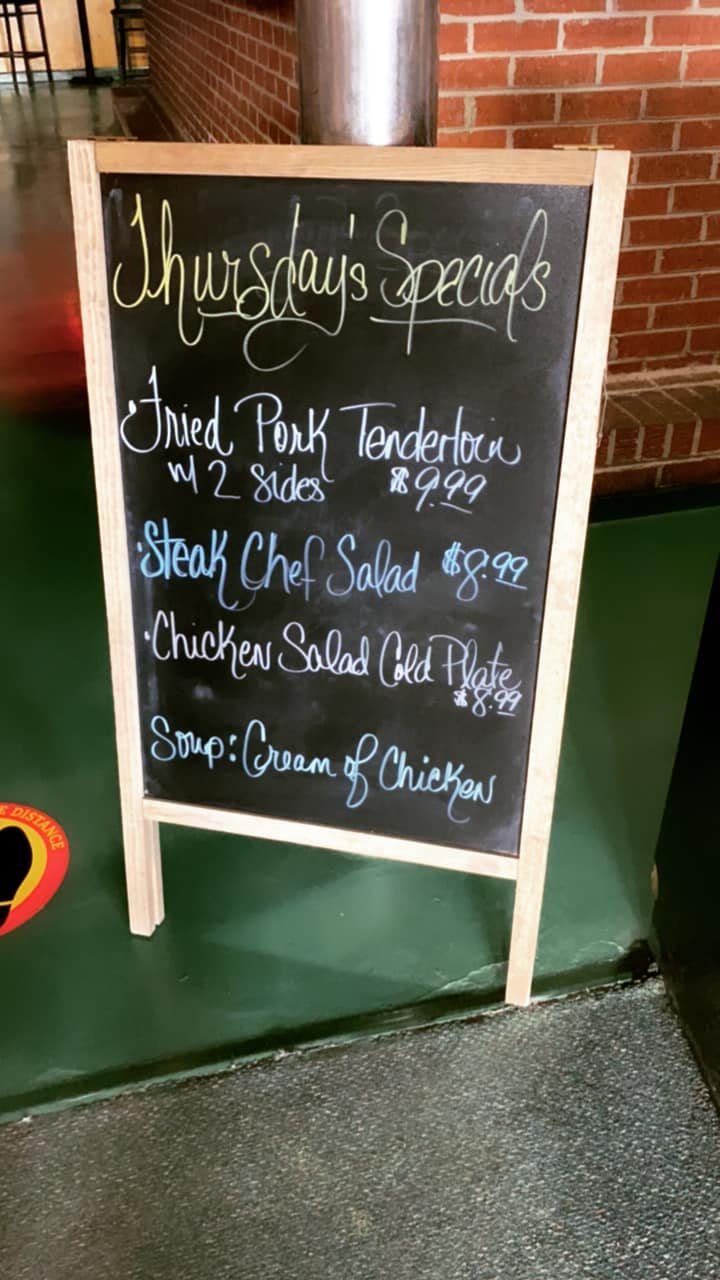 Thursday's Specials
• Fried Pork Tenderloin
w/ 2 Sides $9.99
• Steak Chef Salad $8.99
• Chicken Salad Cold Plate
$8.99
Soup: Cream of Chicken
DISTANCE